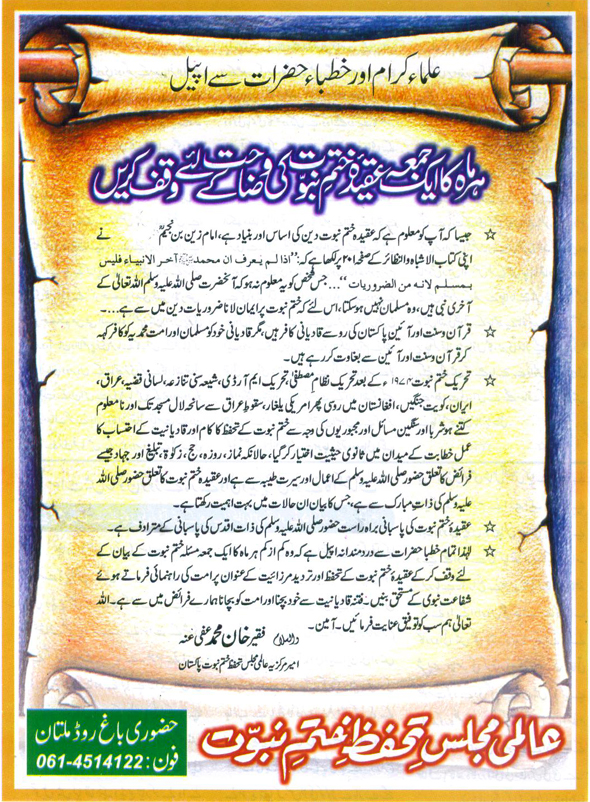 علماء کرام اور خطباء حضرات سے اپیل
ہر ماہ کا ایک جمعہ عقیدۂ ختم نبوت کی وضاحت کے لئے وقف کریں
☆ جیسا کہ آپ کو معلوم ہے کہ عقیدہ ختم نبوت دین کی اساس اور بنیاد ہے، امام زین بن نجیمؒ نے
اپنی کتاب الاشباہ والنظائر کے صفحہ ۲۰۱ پر لکھا ہے کہ: ”اذا لم یعرف ان محمدﷺ آخر الانبیاء فلیس
بمسلم لانہ من الضروریات“... جس شخص کو یہ معلوم نہ ہو کہ آنحضرت صلی اللہ علیہ وسلم اللہ تعالیٰ کے
آخری نبی ہیں، وہ مسلمان نہیں ہوسکتا، اس لئے کہ ختم نبوت پر ایمان لانا ضروریات دین میں سے ہے....
☆ قرآن وسنت اور آئین پاکستان کی رو سے قادیانی کافر ہیں، مگر قادیانی خود کو مسلمان اور امت محمدیہ کو کافر کہہ
کر قرآن وسنت اور آئین سے بغاوت کر رہے ہیں۔
☆ تحریک ختم نبوت ۱۹۷۴ء کے بعد تحریک نظام مصطفیٰ، تحریک ایم آر ڈی، شیعہ سنی تنازعہ، لسانی قضیہ، عراق،
ایران، کویت جنگیں، افغانستان میں روسی پھر امریکی یلغار، سقوط عراق سے سانحہ لال مسجد تک اور نا معلوم
کتنے ہوشربا اور سنگین مسائل اور مجبوریوں کی وجہ سے ختم نبوت کے تحفظ کا کام اور قادیانیت کے احتساب کا
عمل خطابت کے میدان میں ثانوی حیثیت اختیار کرگیا، حالانکہ نماز، روزہ، حج، زکوٰۃ، تبلیغ اور جہاد جیسے
فرائض کا تعلق حضور صلی اللہ علیہ وسلم کے اعمال اور سیرت طیبہ سے ہے اور عقیدہ ختم نبوت کا تعلق حضور صلی اللہ
علیہ وسلم کی ذات مبارک سے ہے، جس کا بیان ان حالات میں بہت اہمیت رکھتا ہے۔
☆ عقیدۂ ختم نبوت کی پاسبانی براہ راست حضور صلی اللہ علیہ وسلم کی ذات اقدس کی پاسبانی کے مترادف ہے۔
☆ لہٰذا تمام خطبا حضرات سے دردمندانہ اپیل ہے کہ وہ کم از کم ہر ماہ کا ایک جمعہ مسئلہ ختم نبوت کے بیان کے
لئے وقف کرکے عقیدۂ ختم نبوت کے تحفظ اور تردید مرزائیت کے عنوان پر امت کی راہنمائی فرماتے ہوئے
شفاعت نبوی کے مستحق بنیں۔ فتنہ قادیانیت سے خود بچنا اور امت کو بچانا ہمارے فرائض میں سے ہے۔ اللہ
تعالیٰ ہم سب کو توفیق عنایت فرمائیں۔ آمین۔
والسلام فقیر خان محمد عفی عنہ
امیر مرکزیہ عالمی مجلس تحفظ ختم نبوت پاکستان
عالمی مجلس تحفظ ختم نبوت
حضوری باغ روڈ ملتان
فون: 061-4514122